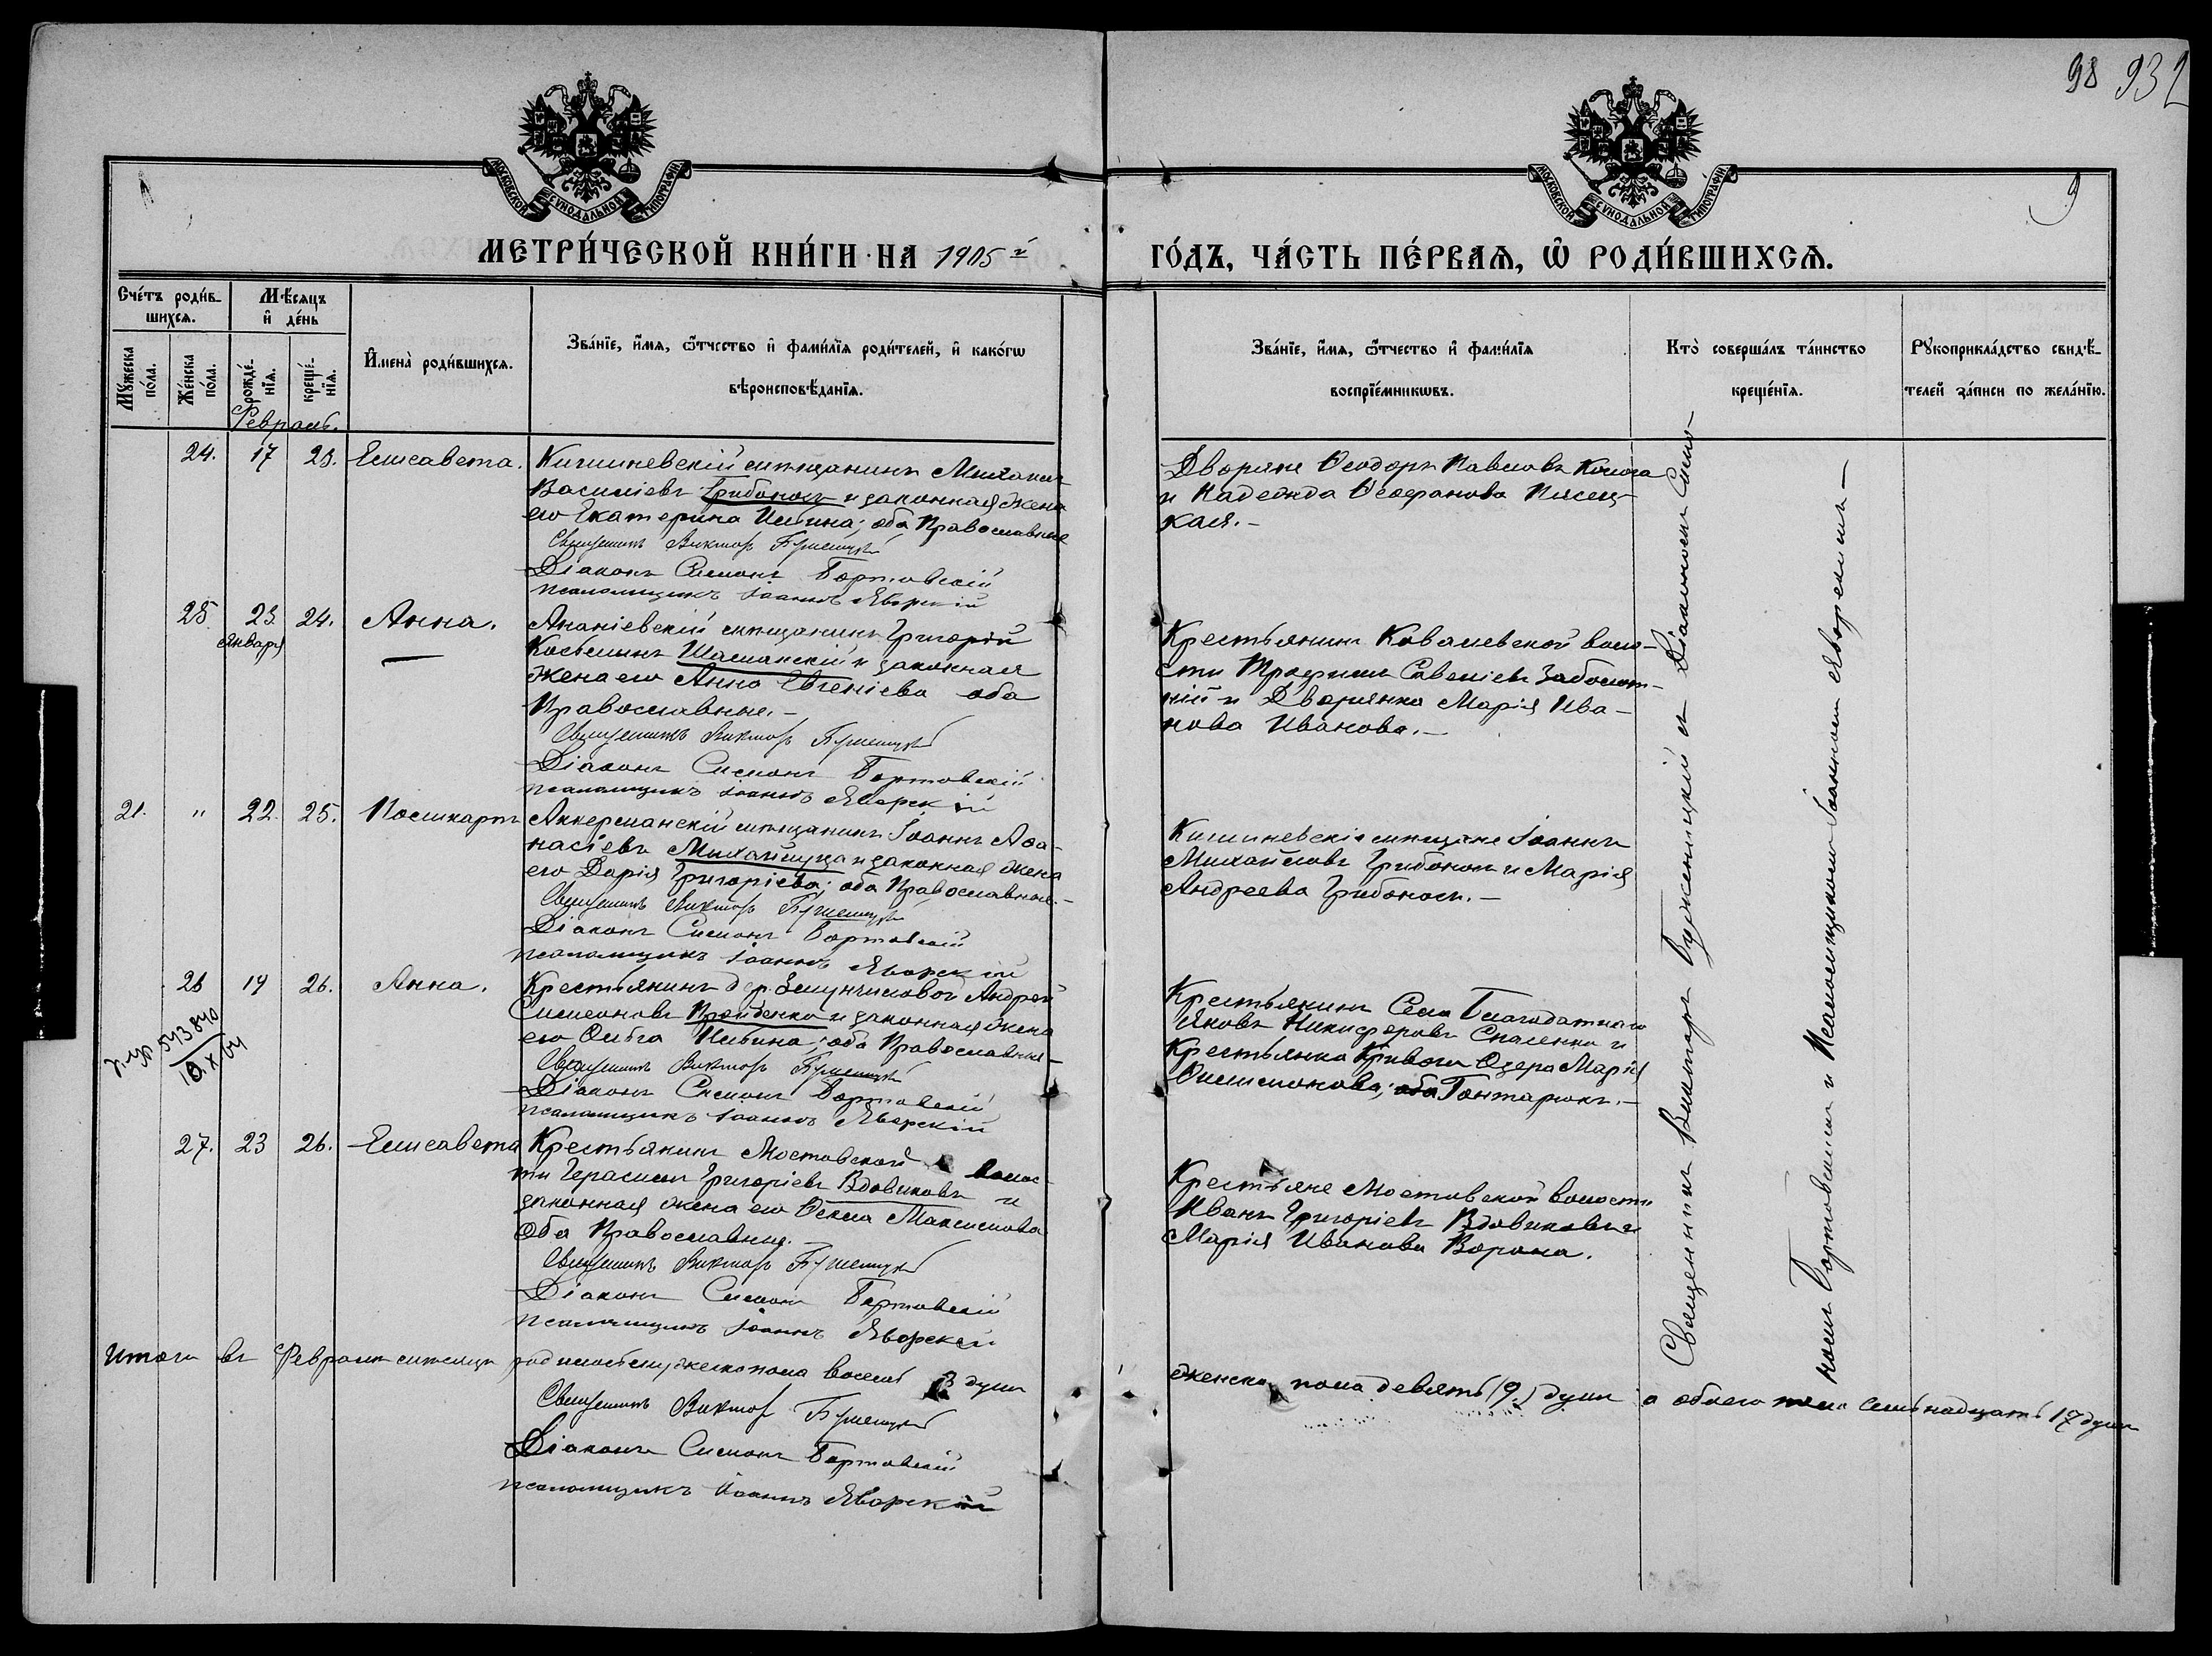 98 932
9
МОСКОВСКОЙ СѴНОДАЛЬНОЙ ТИПОГРАФІИ.
МОСКОВСКОЙ СѴНОДАЛЬНОЙ ТИПОГРАФІИ.
МЕТРИ́ЧЕСКОЙ КНИ́ГИ НА 1905й
ГО́ДЪ, ЧА́СТЬ ПЕ́РВАѦ, Ѡ҆ РОДИ́ВШИХСѦ.
Сче́тъ роди́в-
шихсѧ.
Мѣ́сѧцъ
и҆ де́нь
Мꙋ́жеска
по́ла.
Же́нска
по́ла.
рожде́-
нїѧ.
креще́-
нїѧ.
И҆мена̀ роди́вшихсѧ.
Зва́нїе, и҆́мѧ, ѻ҆́тчество и҆ фами́лїѧ роди́телей, и҆ како́гѡ
вѣроисповѣ́данїѧ.
Зва́нїе, и҆́мѧ, ѻ҆́тчество и҆ фами́лїѧ
воспрїе́мникѡвъ.
Кто̀ соверша́лъ та́инство
креще́нїѧ.
Рꙋкоприкла́дство свидѣ́-
телей за́писи по жела́нїю.
Февраль.
24. 17 23. Елисавета.
Кишиневскій мѣщанинъ Михаилъ
Василіевъ Грибоносъ и законная жена
его Екатерина Ильина; оба Православные
Священникъ Викторъ Буженицкій
Діаконъ Симонъ Бортовскій
псаломщикъ Іоаннъ Яворскій
Дворяне Ѳеодоръ Павловъ
и Надежда Ѳеофанова Пясец-
кая.-
25 23 24. Анна.
января
Ананіевскій мѣщанинъ Григорій
Косьминъ Шаманскій и законная
жена его Анна Евгеніева оба
Православные.-
Священникъ Викторъ Буженицкій
Діаконъ Симонъ Бортовскій
псаломщикъ Іоаннъ Яворскій
Крестьянинъ Ковалевской воло-
сти Трофимъ Савеліевъ Заболот-
ній и Дворянка Марія Ива-
нова Иванова.-
21. " 22. 25. Поликарпъ
Аккерманскій мѣщанинъ Іоаннъ Аѳа-
насіевъ Михайлуца и законная жена
его Дарія Григоріева; оба Православные.-
Священникъ Викторъ Буженицкій
Діаконъ Симонъ Бортовскій
псаломщикъ Іоаннъ Яворскій
Кишиневскіе мѣщане Іоаннъ
Михайловъ Грибоносъ и Марія
Андреева Грибоносъ.-
26 19 26. Анна.
543840
10.X.64
Крестьянинъ дер. Андрей
Симеоновъ Пройденко и законная жена
его Ольга Ильина; оба Православные-
Священникъ Викторъ Буженицкій
Діаконъ Симонъ Бортовскій
псаломщикъ Іоаннъ Яворскій
Крестьянинъ Села Благодатнаго
Яковъ Никифоровъ и
Крестьянка Криваго Озера Марія
Филимонова; оба Гонтарюкъ.-
27. 23 26. Елисавета
Крестьянинъ Мостовской волос-
ти Герасимъ Григоріевъ Вдовиковъ и
законная жена его Ѳекла Максимова
Оба Православные.
Священникъ Викторъ Буженицкій
Діаконъ Симонъ Бортовскій
псаломщикъ Іоаннъ Яворскій
Крестьяне Мостовской волости
Иванъ Григоріевъ Вдовиковъ и
Марія Иванова Ворона.
Священникъ Викторъ Буженицкій и Діакономъ Симо-
номъ Бортовскимъ и Псаломщикомъ Іоанномъ Яворскимъ-
Итого въ Февралѣ мѣсяцѣ родилось мужеска пола восемь 8 душъ
женска пола девять (9) душъ а обоего пола семьнадцать 17 душъ
Священникъ Викторъ Буженицкій
Діаконъ Симонъ Бортовскій
псаломщикъ Іоаннъ Яворскій